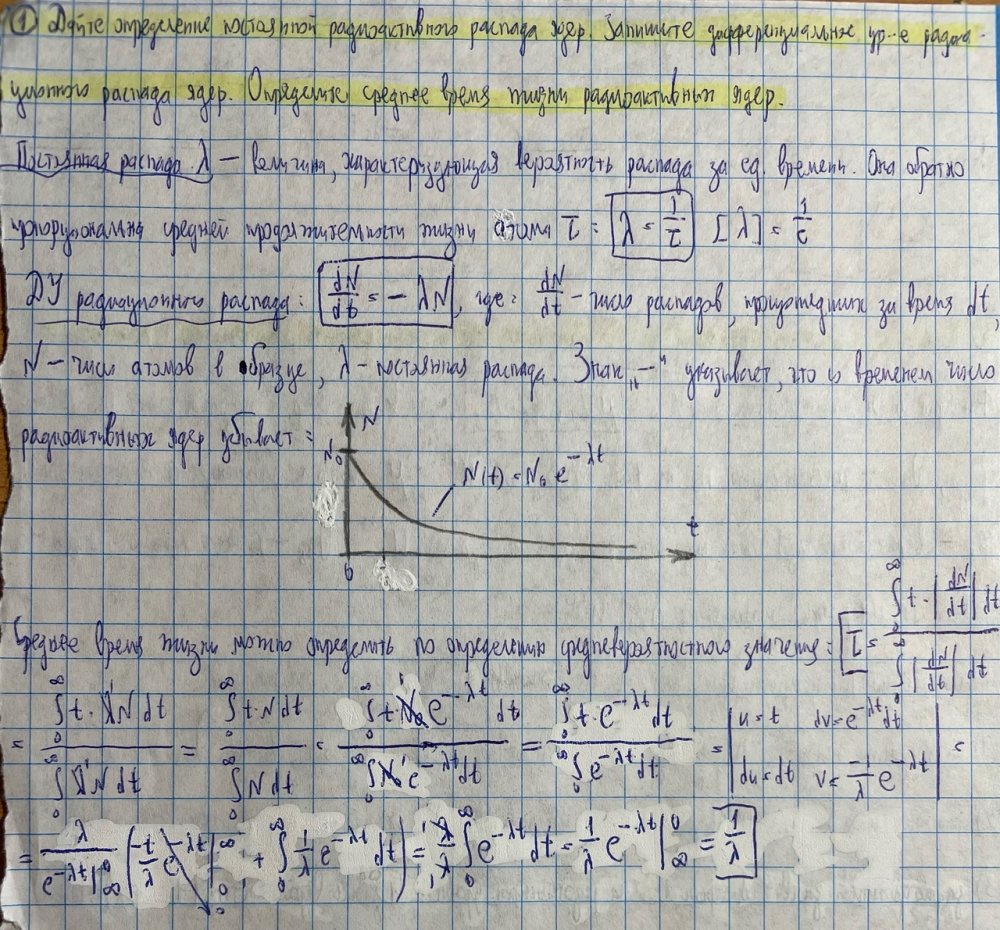 ① Дайте определение постоянной радиоактивного распада ядер. Запишите дифференциальное ур-е радиа-
ционного распада ядер. Определите среднее время жизни радиоактивных ядер.
Постоянная распада λ — величина, характеризующая вероятность распада за ед. времени. Она обратно
пропорциональна средней продолжительности жизни атома τ: λ = 1/τ [λ] = 1/с
ДУ радиационного распада: dN/dt = - λN, где: dN/dt - число распадов, произошедших за время dt,
N - число атомов в образце, λ - постоянная распада. Знак „—" указывает, что со временем число
радиоактивных ядер убывает:
N
N₀
N(t) = N₀ e^(-λt)
t
0
Среднее время жизни можно определить по определению средневероятностного значения: τ = ∫₀^∞ t·|dN/dt| dt / ∫₀^∞ |dN/dt| dt
= ∫₀^∞ t·λN dt / ∫₀^∞ λN dt = ∫₀^∞ t·N dt / ∫₀^∞ N dt = ∫₀^∞ t·N₀ e^(-λt) dt / ∫₀^∞ N₀ e^(-λt) dt = ∫₀^∞ t·e^(-λt) dt / ∫₀^∞ e^(-λt) dt = | u=t dv=e^(-λt)dt du=dt v=-1/λ e^(-λt) | =
= λ / e^(-λt)|_∞^0 ( -t/λ e^(-λt) |₀^∞ + ∫₀^∞ 1/λ e^(-λt) dt ) = λ/λ ∫₀^∞ e^(-λt) dt = 1/λ e^(-λt) |_∞^0 = 1/λ